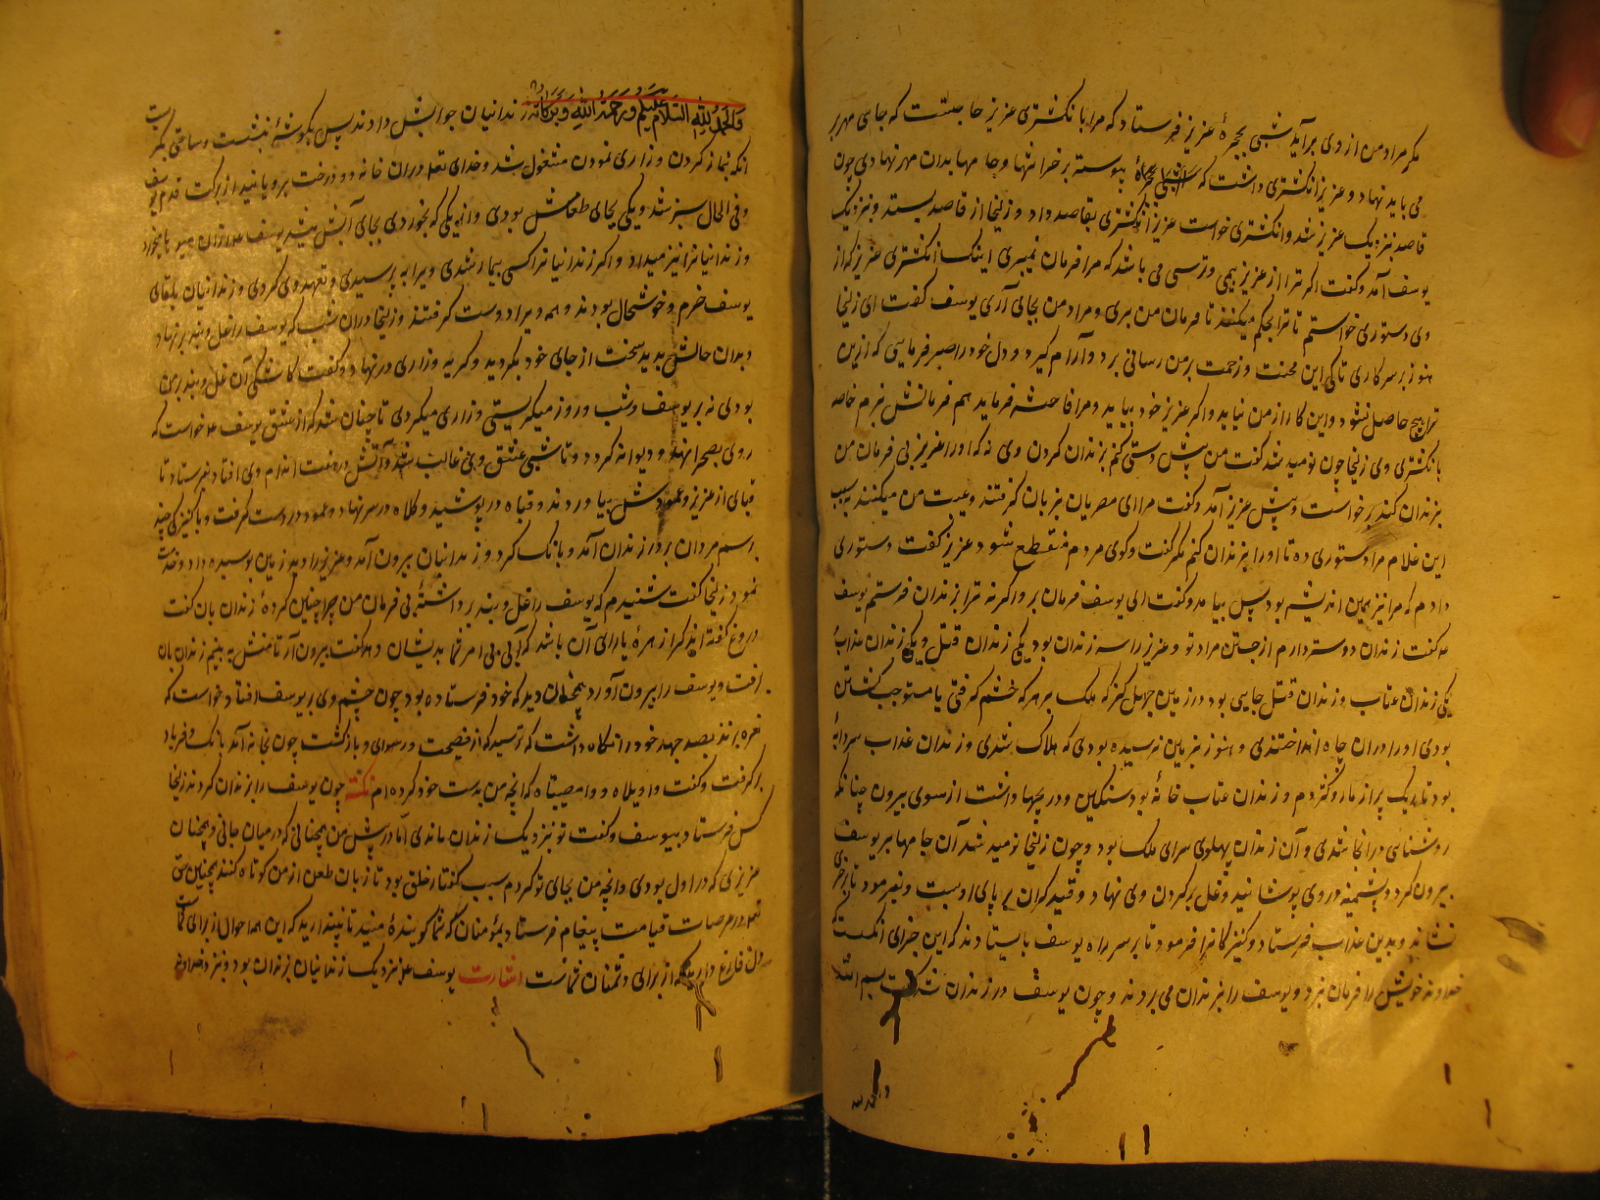 مگر مراد من از وی برآید شبی بحجرهٔ عزیز فرستاد که مرا بانگشتری عزیز حاجتست که جای مهر بر
می باید نهاد و عزیز انگشتری داشت که پیوسته بر خزانها و جامها بدان مهر نهادی چون
قاصد بنزدیک عزیز شد و انگشتری خواست عزیز انگشتری بقاصد داد و زلیخا از قاصد بستد و نزدیک
یوسف آمد و گفت اگر ترا از عزیز بیمی و ترسی می باشد که مرا فرمان نمیبری اینک انگشتری عزیز که از
وی دستوری خواستم تا ترا بحکم میکنند تا فرمان من بری و مراد من بجای آری یوسف گفت ای زلیخا
هنوز بر سر کاری تا کی این محنت و زحمت بر من رسانی برد و آرام گیر و دل خود را صبر فرمایی که ازین
ترا هیچ حاصل نشود و این کار از من نیاید و اگر عزیز خود بیاید و مرا فاحشه فرماید هم فرمانش نبرم خاصه
بانگشتری وی زلیخا چون نومید شد گفت من پیش دستی کنم بزندان کردن وی نه که او را عزیز بی فرمان من
بزندان کند برخواست و پیش عزیز آمد و گفت مرا ای مصریان بزبان گرفتند و غیبت من میکنند بسبب
این غلام مرا دستوری ده تا او را بزندان کنم مگر گفت و گوی مردم منقطع شود عزیز گفت دستوری
دادم که مرا نیز همین اندیشه بود پس بیامد و گفت ای یوسف فرمان بر و اگر نه ترا بزندان فرستم یوسف
ع گفت زندان دوستر دارم از جستن مراد تو و عزیز را سه زندان بود یکی زندان قتل و یکی زندان عذاب
یکی زندان عتاب و زندان قتل جایی بود در زمین که ملک بر هر که خشم گرفتی یا مستوجب کشتن
بودی او را در آن چاه انداختندی و هنوز بزمین نرسیده بودی که هلاک شدی و زندان عذاب سردابهٔ
بود تاریک پر از مار و کژدم و زندان عتاب خانهٔ بود سنگین و دریچها داشت از سوی بیرون چنانکه
روشنایی در آنجا شدی و آن زندان پهلوی سرای ملک بود و چون زلیخا نومید شد آن جامها بر یوسف
بیرون کرد و پشمینه در وی پوشانید و غل بر گردن وی نهاد و قید گران بر پای او بست و بفرمود تا بر خری
نشاند و بدین عذاب فرستاد و کنیزکانرا فرمود تا بر سر راه یوسف بایستادند که این جزای آنکست
خداوند خویش را فرمان نبرد و یوسف را بزندان می بردند و چون یوسف در زندان گفت بسم الله
والحمد لله السلام علیکم ورحمة الله وبرکاته زندانیان جوابش دادند پس بگوشهٔ بنشست و ساعتی
آنکه بنماز کردن و زاری نمودن مشغول شد و خدای تعالی در آن خانه دو درخت برویانید از برکت قدم یوسف
و فی الحال سبز شد و یکی بجای طعامش بودی و از یکی که بخوردی بجای آبش بود یوسف
و زندانیانرا نیز میداد و اگر زندانیانرا کسی بیمار شدی ویرا بپرسیدی و تعهد وی کردی و زندانیان بلقای
یوسف خرم و خوشحال بودند و همه ویرا دوست گرفتند و زلیخا در آن شب که یوسف را غل و بند بر نهاد
و بدان حالش بدید سخت از جای خود بگردید و گریه و زاری در نهاد و گفت کاشکی آن غل و بند بر من
بودی نه بر یوسف و شب و روز میگریستی و زاری میکردی تا چنان شد که از عشق یوسف ع خواست که
روی بصحرا نهد و دیوانه گردد و تا شبی عشق وی غالب شد و آتش در هفت اندام وی افتاد بفرستاد تا
قبای از عزیز و عمودش بیاوردند و قباه در پوشید و کلاه در سر نهاد و عمود در دست گرفت و با کنیزکی چند
برسم مردان بر در زندان آمد و بانک کرد و زندانبان بیرون آمد و عزیز را دید زمین بوسیده داد و خدمت
نمود زلیخا گفت شنیدم که یوسف را غل و بند برداشتهٔ بی فرمان من چرا چنین کردهٔ زندان بان گفت
دروغ گفته اند کرا زهرهٔ یارای آن باشد که بی امر شما بدیشان دهد گفت بیرون آر تا منش به بینم زندان بان
رفت و یوسف را بیرون آورد همچنان دید که خود فرستاده بود چون چشم وی بر یوسف افتاد خواست که
نعره بزند بصد جهد خود را نگاه داشت که ترسید که از فضیحت و رسوای و بازگشت چون بخانه آمد بانک و فریاد
برگرفت و گفت واویلاه و وامصیبتاه که آنچه من بدست خود کرده ام نکته چون یوسف را بزندان کردند زلیخا
کس فرستاد بیوسف و گفت تو نزدیک زندان ماندی اما در پیش من همچنانی که در میان جانی و همچنان
عزیزی که در اول بودی و آنچه من بجای تو کردم سبب گفتار خلق بود تا زبان طعن از من کوتاه کنند همچنین حق
تعالی در عرصات قیامت پیغام فرستاد بمؤمنان که شما گویندهٔ منید تا نپندارید که این همه احوال از برای
دل فارغ دارید که از برای دشمنان شماست اشارت یوسف ع نزدیک زندانیان بزندان بود و نزد خداوند